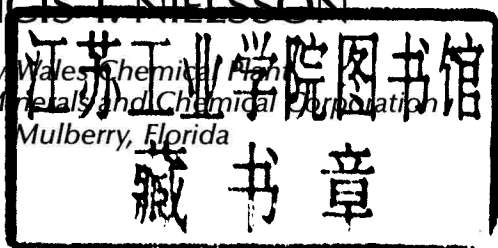 NIELSSON
江苏工业学院图书馆
Wales Chemical Plant
Minerals and Chemical Corporation
Mulberry, Florida
藏书章